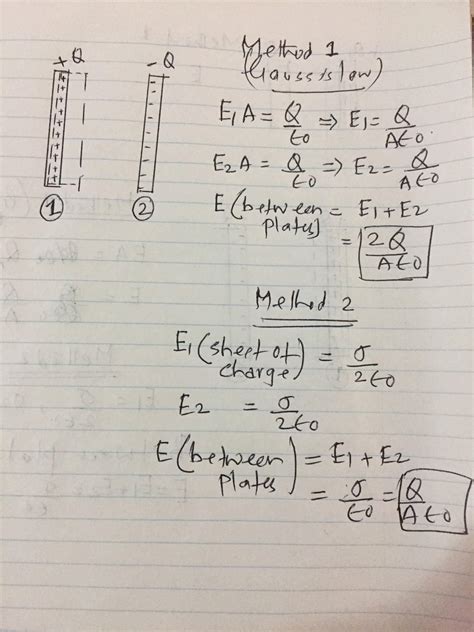 +Q
-Q
① ②
Method 1
(Gauss's law)
E₁A = Q/ε0 ⇒ E₁ = Q/Aε0.
E₂A = Q/ε0 ⇒ E₂ = Q/Aε0
E (between plates) = E₁ + E₂
= 2Q/Aε0
Method 2
E₁ (sheet of charge) = σ/2ε0
E2 = σ/2ε0
E (between plates) = E₁ + E₂
= σ/ε0 = Q/Aε0